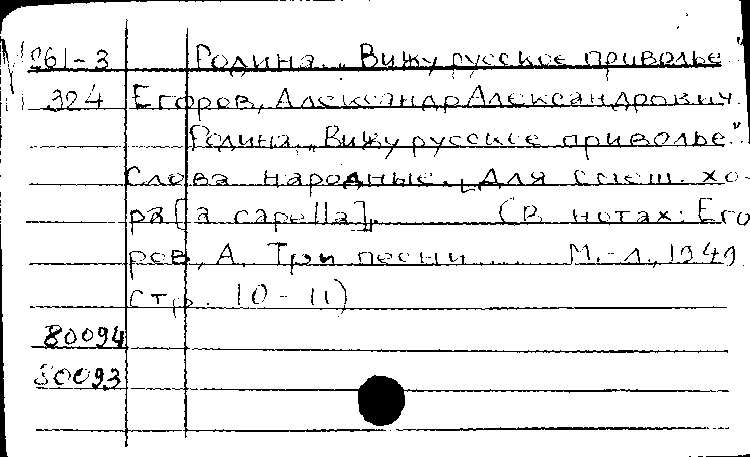 М261-3 Родина. „Вижу русское приволье"
324 Егоров, Александр Александрович.
Родина. „Вижу русское приволье".
Слова народные. Для смеш. хо-
ра [a capella]. (В нотах: Его
ров, А. Три песни ... М.-Л., 1949
стр. 10-11)
80094
80093